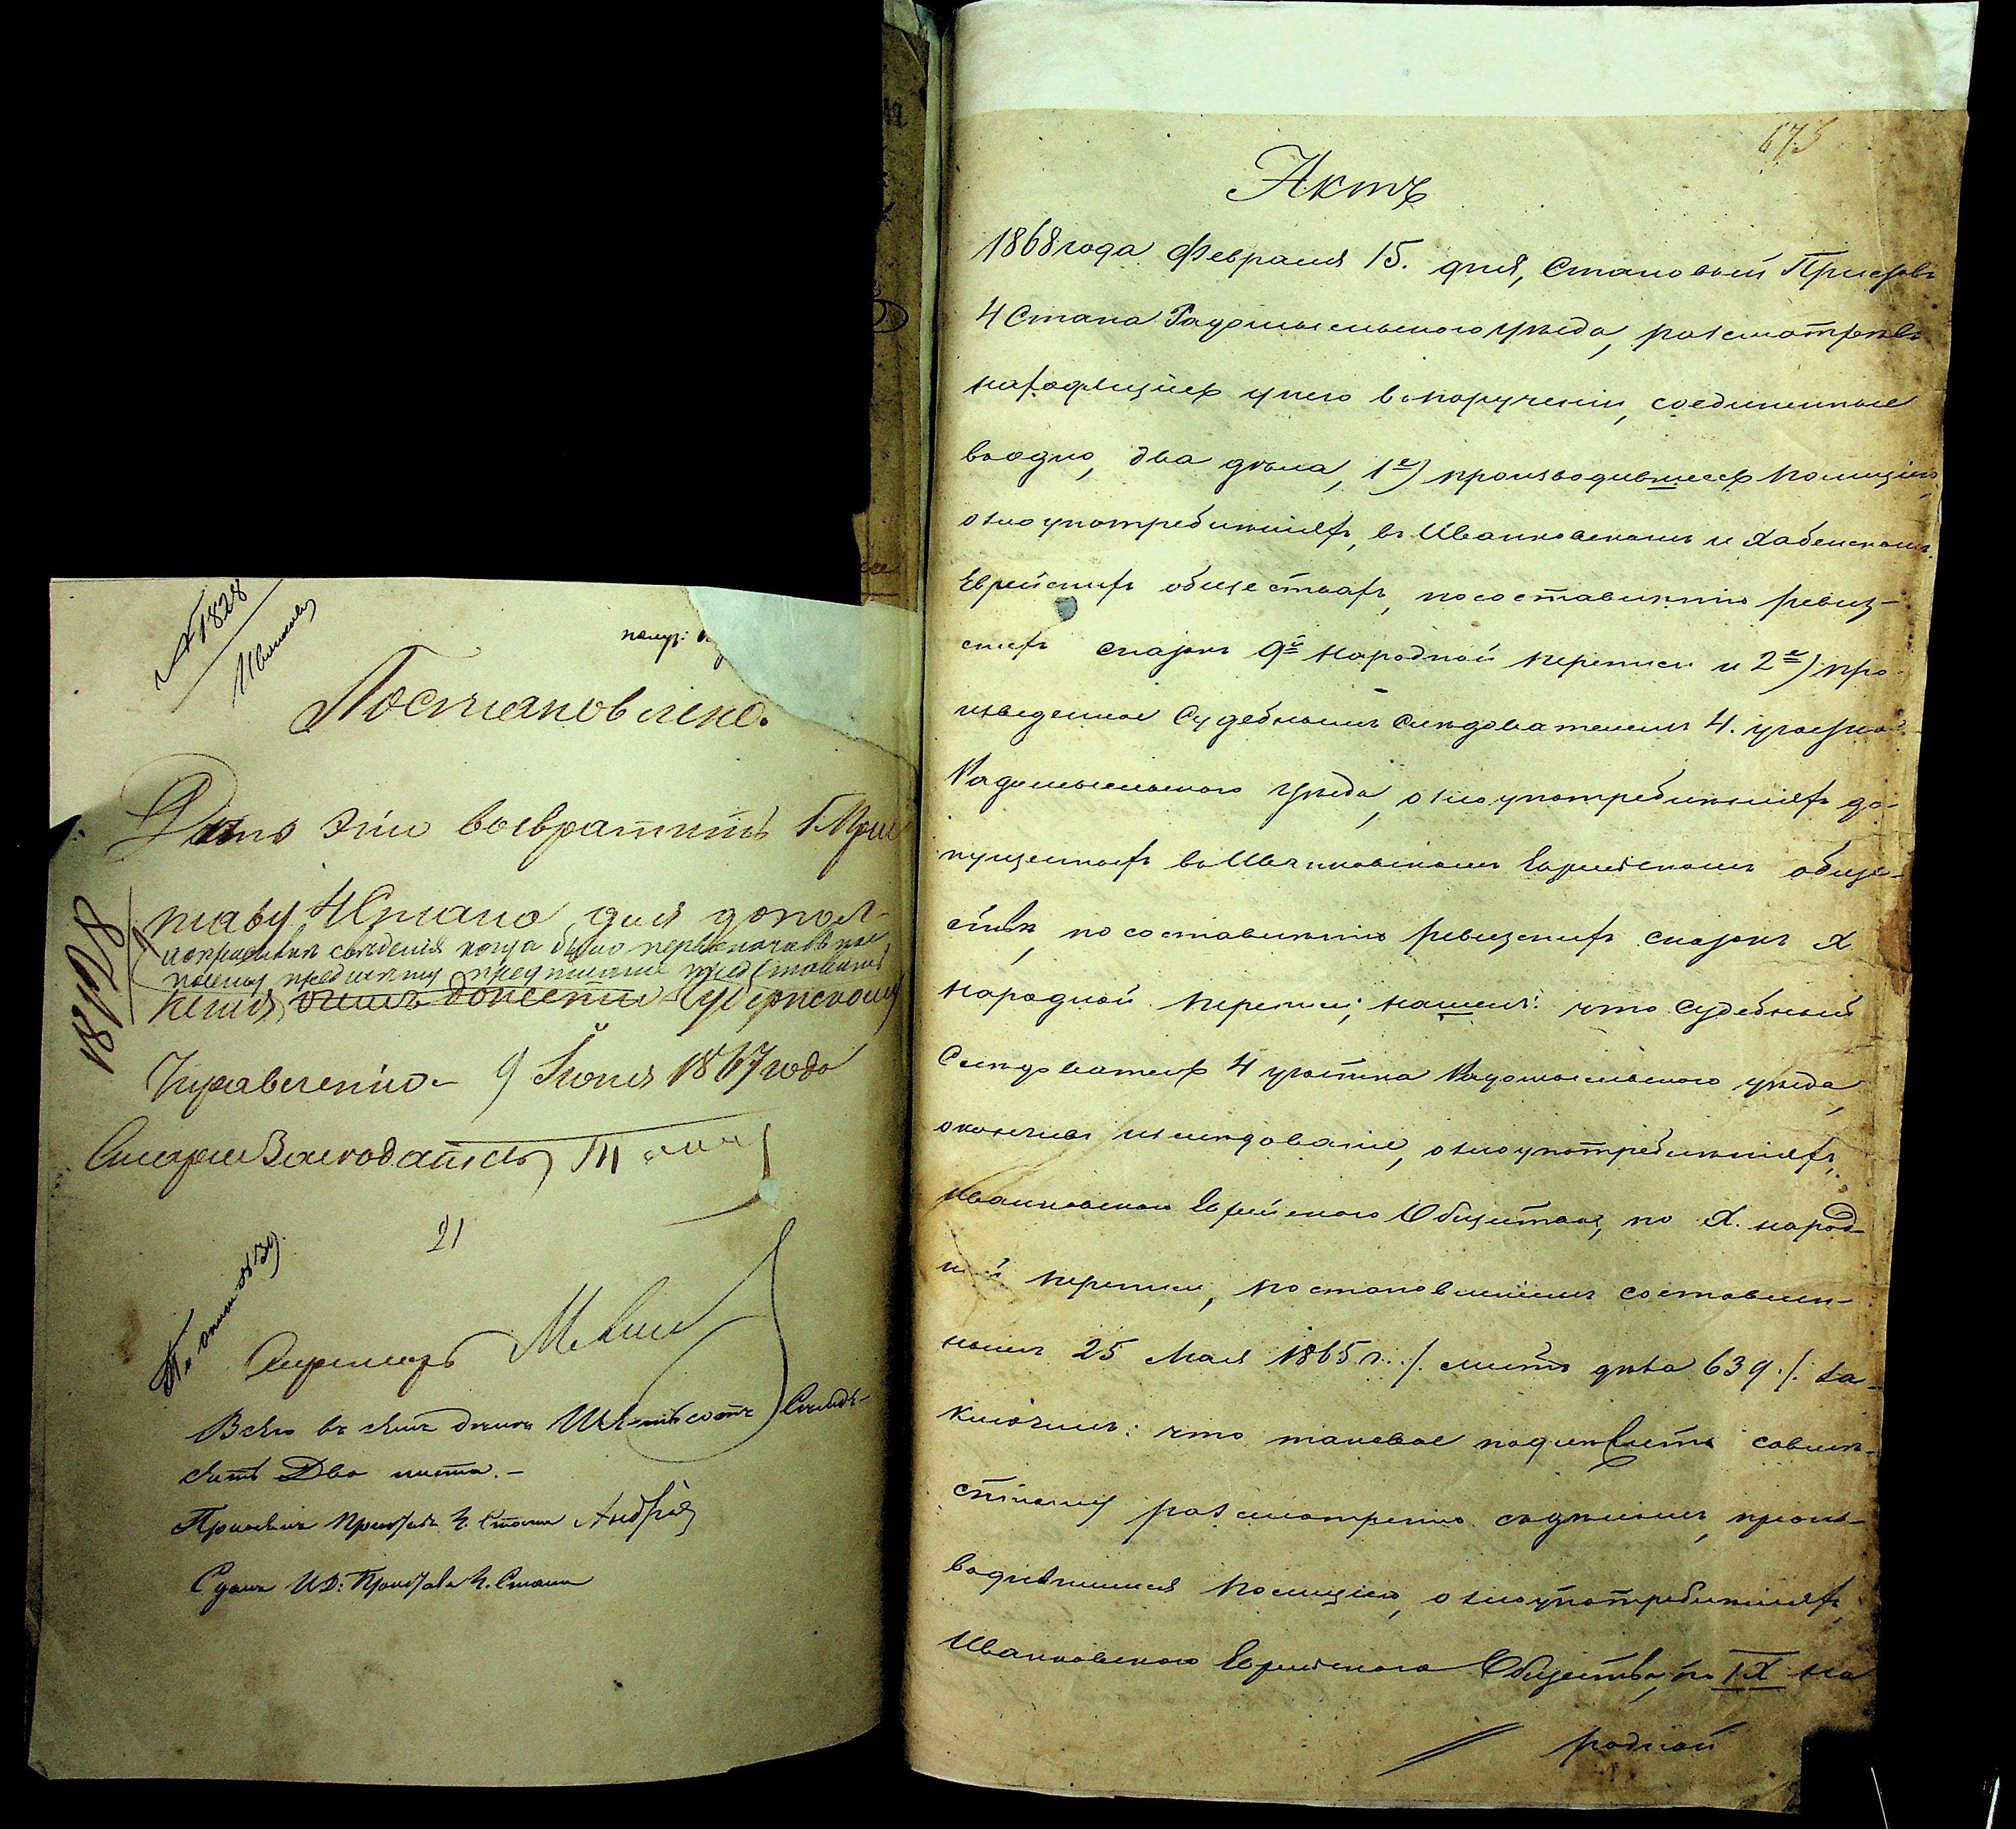 № 1828
Постановлено.
Дело это возвратить Г. При
ставу 4 Стана для допол-
кенія, Губернскому
Правленію – 9 Іюня 1867 года
21
Всего въ семъ дѣлѣ Шестьсотъ Семьде-
сятъ Два листа. –
Принялъ Приставъ 4. Стана
Сдалъ И.Д. Пристава 4. Стана
673
Актъ
1868 года Февраля 15. дня, Становый Приставъ
4 Стана Радомысльского уѣзда, разсмотрѣвъ
находящіеся у него въ порученіи, соединенные
въ одно, два дѣла, 1е) производившееся Полиціею,
о злоупотребленіяхъ, въ Иванковскомъ и Хабенскомъ
Еврейскихъ обществахъ, по составленію ревиз-
скихъ сказокъ 9й народной переписи и 2е) про-
изведенное Судебнымъ Слѣдователемъ 4. участка
Радомысльского уѣзда, о злоупотребленіяхъ до-
пущенныхъ въ Иванковскомъ Еврейскомъ обще-
ствѣ, по составленію ревизскихъ сказокъ X
народной переписи; нашелъ: что Судебный
Слѣдователь 4 участка Радомысльского уѣзда,
окончивъ изслѣдованіе, о злоупотребленіяхъ,
Иванковского Еврейского Общества, по X. народ-
ной переписи, постановленіемъ составлен-
нымъ 25 Мая 1865 г. /. листъ дѣла 639 /. за-
ключилъ: что таковое подлежитъ совмѣ-
стному разсмотрѣнію съ дѣломъ, произ-
водившимся Полиціею, о злоупотребленіяхъ,
Иванковского Еврейского Общества, по IX на
родной